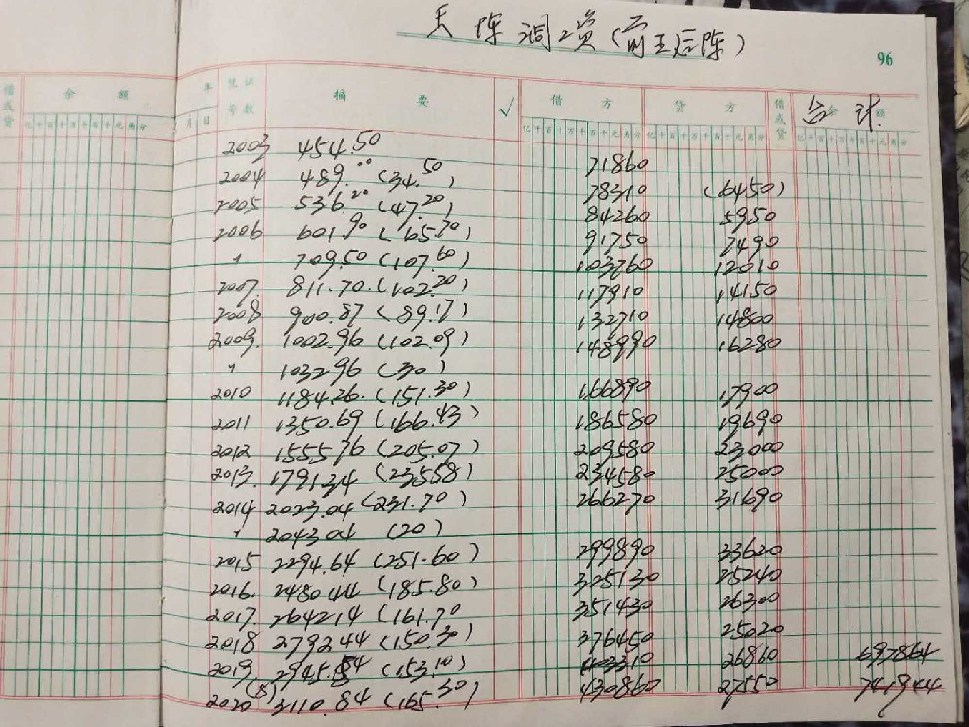 王陈调资(前王后陈)
96
借或贷 余额 年 凭证 摘要 √ 借方 贷方 借或贷 余额 合计
月 日 号数 亿千百十万千百十元角分 亿千百十万千百十元角分 亿千百十万千百十元角分
2003 454.50 71860
2004 489.00 (34.50) 78310 (6450)
2005 536.20 (47.20) 84260 5950
2006 601.90 (65.70) 91750 7490
〃 709.50 (107.60) 103760 12010
2007. 811.70. (102.20) 117910 14150
2008 900.87 (89.17) 132710 14800
2009. 1002.96 (102.09) 148990 16280
〃 1032.96 (30)
2010 1184.26. (151.30) 166890 17900
2011 1350.69 (166.43) 186580 19690
2012 1555.76 (205.07) 209580 23000
2013. 1791.34 (235.58) 234580 25000
2014 2023.04 (231.70) 266270 31690
〃 2043.04 (20)
2015 2294.64 (251.60) 299890 33620
2016 2480.44 (185.80) 325130 25240
2017. 2642.14 (161.70 351430 26300
2018 2792.44 (150.30) 376450 25020
2019 2945.54 (153.10) 26860 697864
2020(8) 3110.84 (165.30) 430860 27550 741944